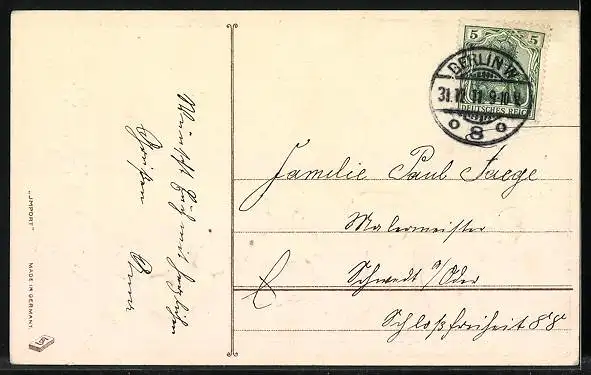 5 5
DEUTSCHES REICH
BERLIN W.
31.12.11 9-10 V.
8
Wünscht Euch mit herzlichen
Grüßen
Familie Paul Faege
Malermeister
Schwedt a/Oder
Schloßfreiheit 88
"IMPORT"
MADE IN GERMANY.